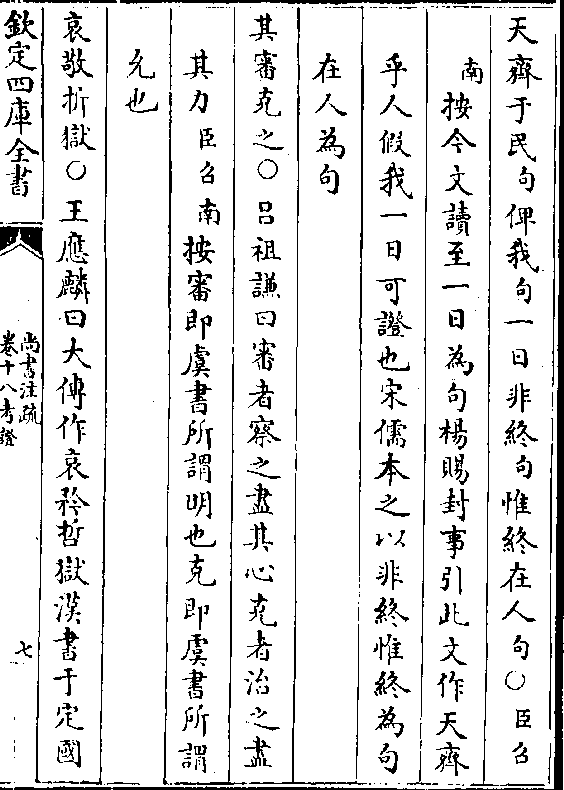 天齊于民句俾我句一日非終句惟終在人句○臣召
南按今文讀至一日為句楊賜封事引此文作天齊
乎人假我一日可證也宋儒本之以非終惟終為句
在人為句
其審克之○呂祖謙曰審者察之盡其心克者治之盡
其力臣召南按審即虞書所謂明也克即虞書所謂
允也
哀敬折獄○王應麟曰大傳作哀矜哲獄漢書于定國
欽定四庫全書
尚書注疏
卷十八考證
七